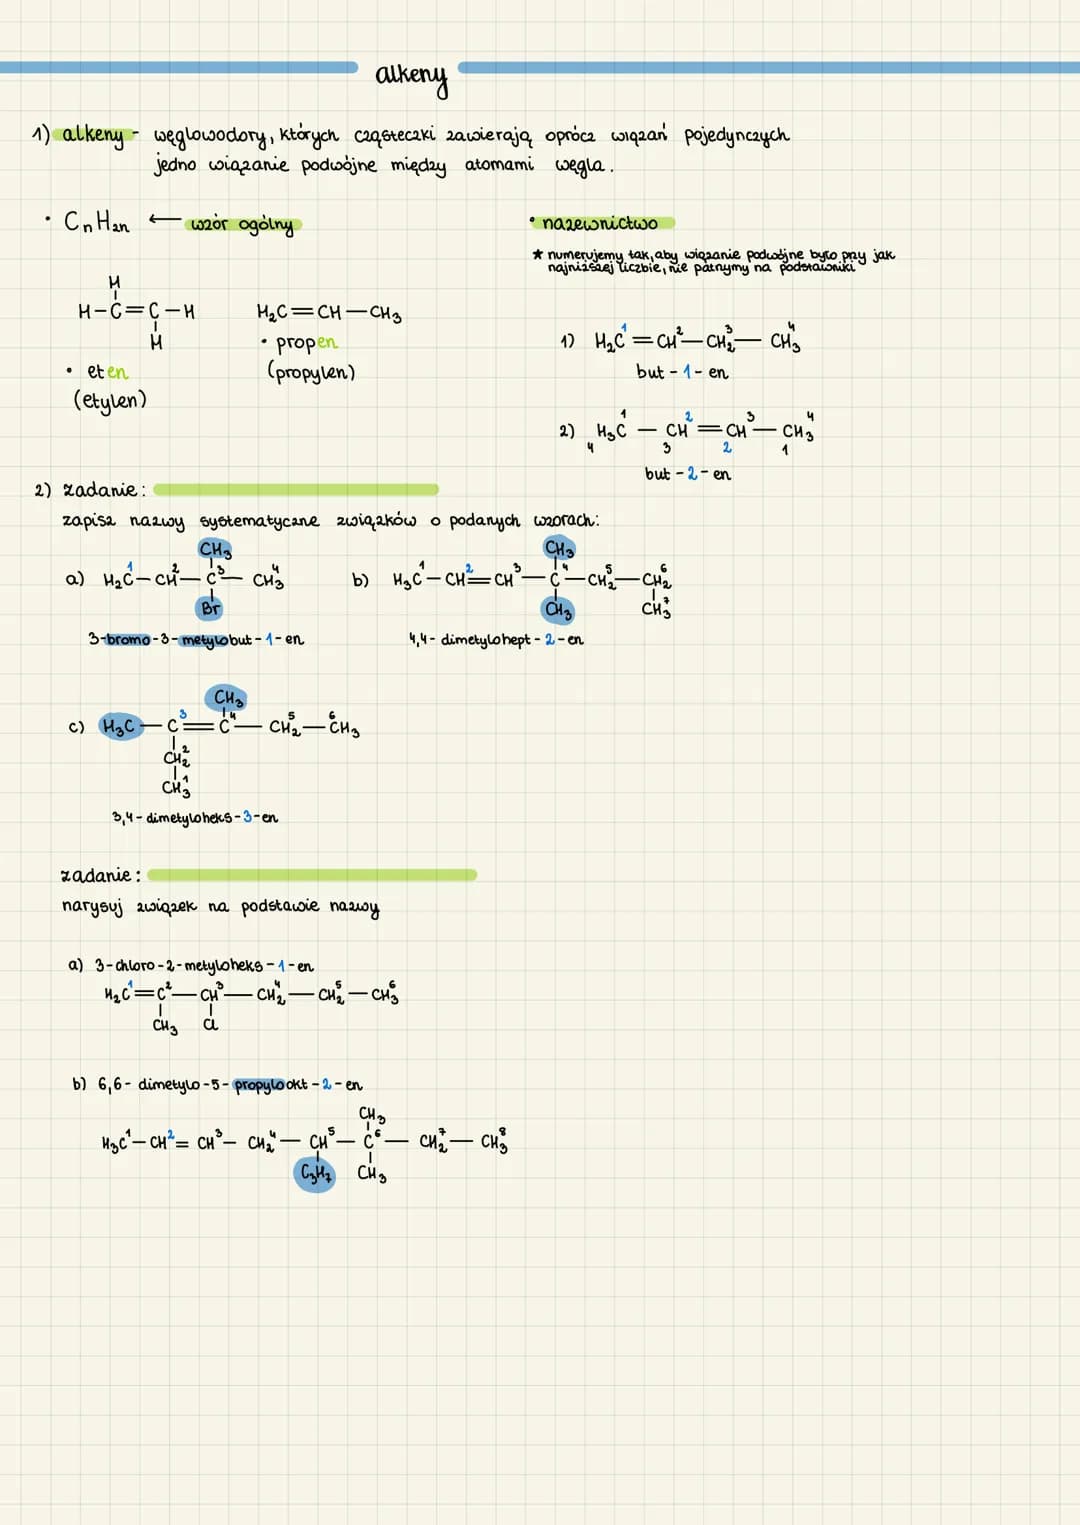 alkeny
1) alkeny - węglowodory, których cząsteczki zawierają oprócz wiązań pojedynczych
jedno wiązanie podwójne między atomami węgla.
• CnH2n ← wzór ogólny
H
H-C=C-H
H
• eten
(etylen)
H2C=CH-CH3
• propen
(propylen)
• nazewnictwo
* numerujemy tak, aby wiązanie podwójne było przy jak
najniższej liczbie, nie patrzymy na podstawniki
1) H2C¹=CH²-CH2³-CH3⁴
but-1-en
2) H3C¹-CH²=CH³-CH3⁴
4 3 2 1
but-2-en
2) zadanie:
zapisz nazwy systematyczne związków o podanych wzorach:
a) H2C¹-CH²-C³-CH3⁴
CH3
Br
3-bromo-3-metylobut-1-en
b) H3C¹-CH²=CH³-C⁴-CH2⁵-CH2⁶
CH3
CH3 CH3⁷
4,4-dimetylohept-2-en
CH3
c) H3C-C³=C⁴-CH2⁵-CH3⁶
CH2²
CH3¹
3,4-dimetyloheks-3-en
zadanie:
narysuj związek na podstawie nazwy
a) 3-chloro-2-metyloheks-1-en
H2C¹=C²-CH³-CH2⁴-CH2⁵-CH3⁶
CH3 Cl
b) 6,6-dimetylo-5-propylookt-2-en
CH3
H3C¹-CH²=CH³-CH2⁴-CH⁵-C⁶-CH2⁷-CH3⁸
C3H7 CH3